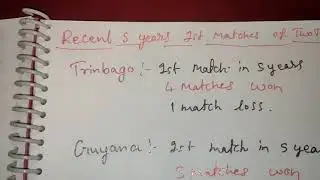 Recent 5 years 1st matches of Two T
Trinbago :- 1st match in 5 years
4 matches won
1 match loss.
Guyana :- 1st match in 5 yea
3 matches won